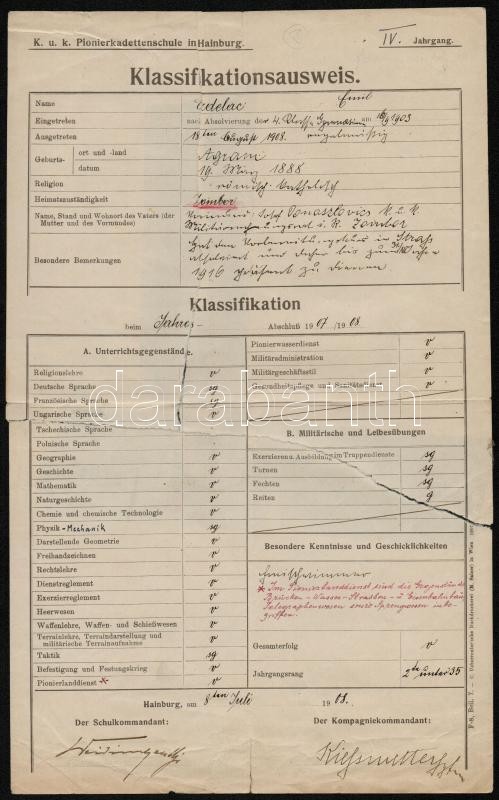 K. u. k. Pionierkadettenschule in Hainburg.
IV. Jahrgang.
Klassifikationsausweis.
Name Edelac Emil
Eingetreten nach Absolvierung der 4. Classe Gymnasium am 16/9 1903
Ausgetreten 18ten August 1908.
Geburts- ort und -land Agram
datum 19. März 1888
Religion römisch-katholisch
Heimatszuständigkeit Zombor
Name, Stand und Wohnort des Vaters (der Mutter und des Vormundes)
Vormund: Josef k. u. k.
i. R. Zombor
Besondere Bemerkungen
in Strass
absolviert und daher bis zum
1916 präsent zu dienen
Klassifikation
beim Jahres- Abschluß 1907/1908
A. Unterrichtsgegenstände.
Religionslehre v
Deutsche Sprache sg
Französische Sprache sg
Ungarische Sprache v
Tschechische Sprache
Polnische Sprache
Geographie v
Geschichte v
Mathematik v
Naturgeschichte v
Chemie und chemische Technologie v
Physik - Mechanik sg
Darstellende Geometrie v
Freihandzeichnen v
Rechtslehre v
Dienstreglement v
Exerzierreglement v
Heerwesen v
Waffenlehre, Waffen- und Schießwesen v
Terrainlehre, Terraindarstellung und militärische Terrainaufnahme v
Taktik sg
Befestigung und Festungskrieg v
Pionierlanddienst * v
Pionierwasserdienst v
Militäradministration v
Militärgeschäftsstil v
Gesundheitspflege und Sanitätsdienst v
B. Militärische und Leibesübungen
Exerzieren u. Ausbildung im Truppendienste sg
Turnen sg
Fechten sg
Reiten g
Besondere Kenntnisse und Geschicklichkeiten
Freischwimmer
* Im Pionierlanddienst sind die Gegenstände
Brücken - Wasser - Strassen - u Eisenbahnbau,
Telegraphenwesen sowie Sprengwesen inbe-
griffen.
Gesamterfolg v
Jahrgangsrang 2te unter 35
Hainburg, am 8ten Juli 1908.
Der Schulkommandant:
Der Kompagniekommandant:
darabanth